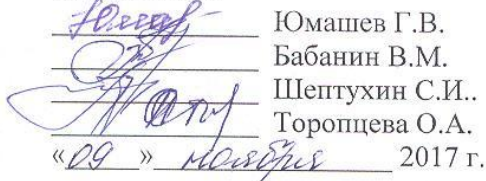 Юмашев Г.В.
Бабанин В.М.
Шептухин С.И..
Торопцева О.А.
«09» ноября 2017 г.